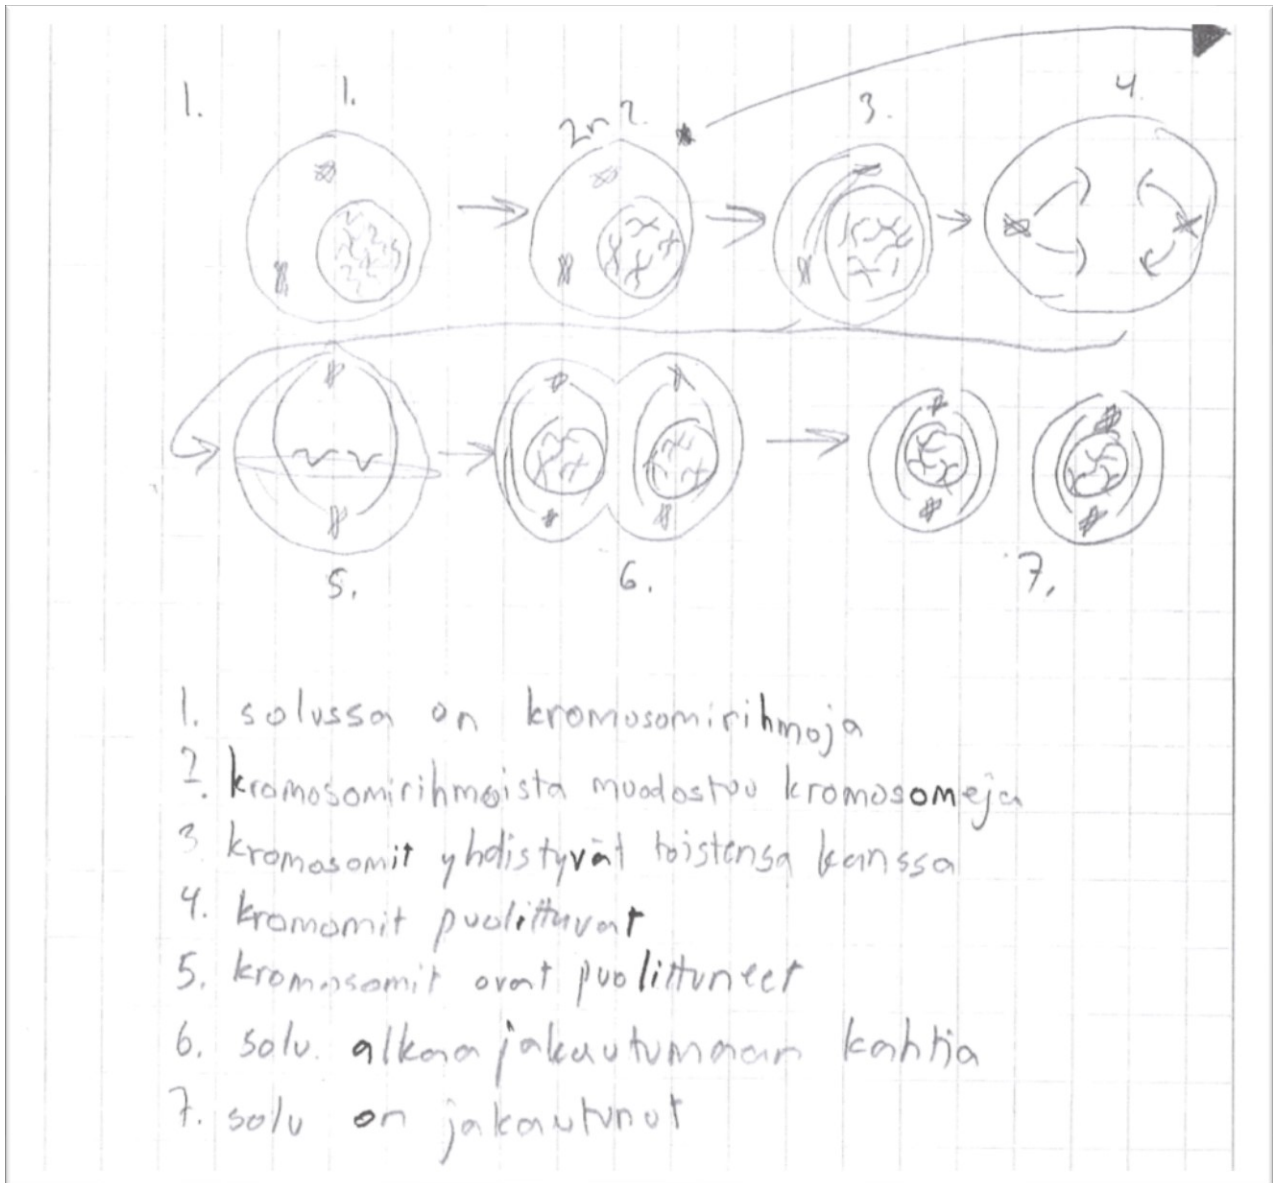 1.
1.
2n 2.
3.
4.
5.
6.
7.
1. solussa on kromosomirihmoja
2. kromosomirihmoista muodostuu kromosomeja
3. kromosomit yhdistyvät toistensa kanssa
4. kromomit puolittuvat
5. kromosomit ovat puolittuneet
6. solu alkaa jakautumaan kahtia
7. solu on jakautunut